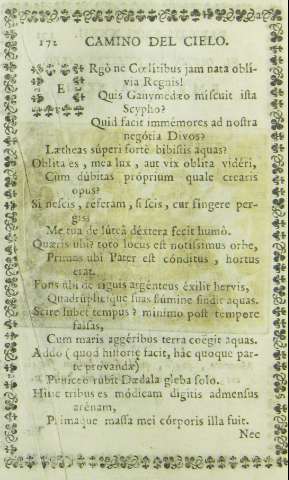 172 CAMINO DEL CIELO.
ERgò ne Cœlitibus jam nata oblí-
via Regnis!
Quis Ganymedæo miscuit ista
Scypho?
Quid facit immémores ad nostra
negótia Divos?
Lætheas súperi fortè bibistis aquas?
Oblita es, mea lux, aut vix oblita vidéri,
Cum dúbitas próprium quale crearis
opus?
Si nescis, referam, si scis, cur fingere per-
gis?
Me tua de lútea déxtera fecit humo.
Quæris ubi? toto locus est notissimus orbe,
Primus ubi Pater est cónditus, hortus
erat.
Fons ubi de riguis argenteus éxilit hervis,
Quadrúplicique suas flúmine findit aquas.
Scire lubet tempus? minimo post tempore
falsas,
Cum maris aggéribus terra coëgit aquas.
Addo (quod historiæ facit, hâc quoque par-
te provandæ)
Púniceo rubit Dædala gleba solo.
Hinc tribus es módicam digitis admensus
arenam,
Primaque massa mei córporis illa fuit.
Nec